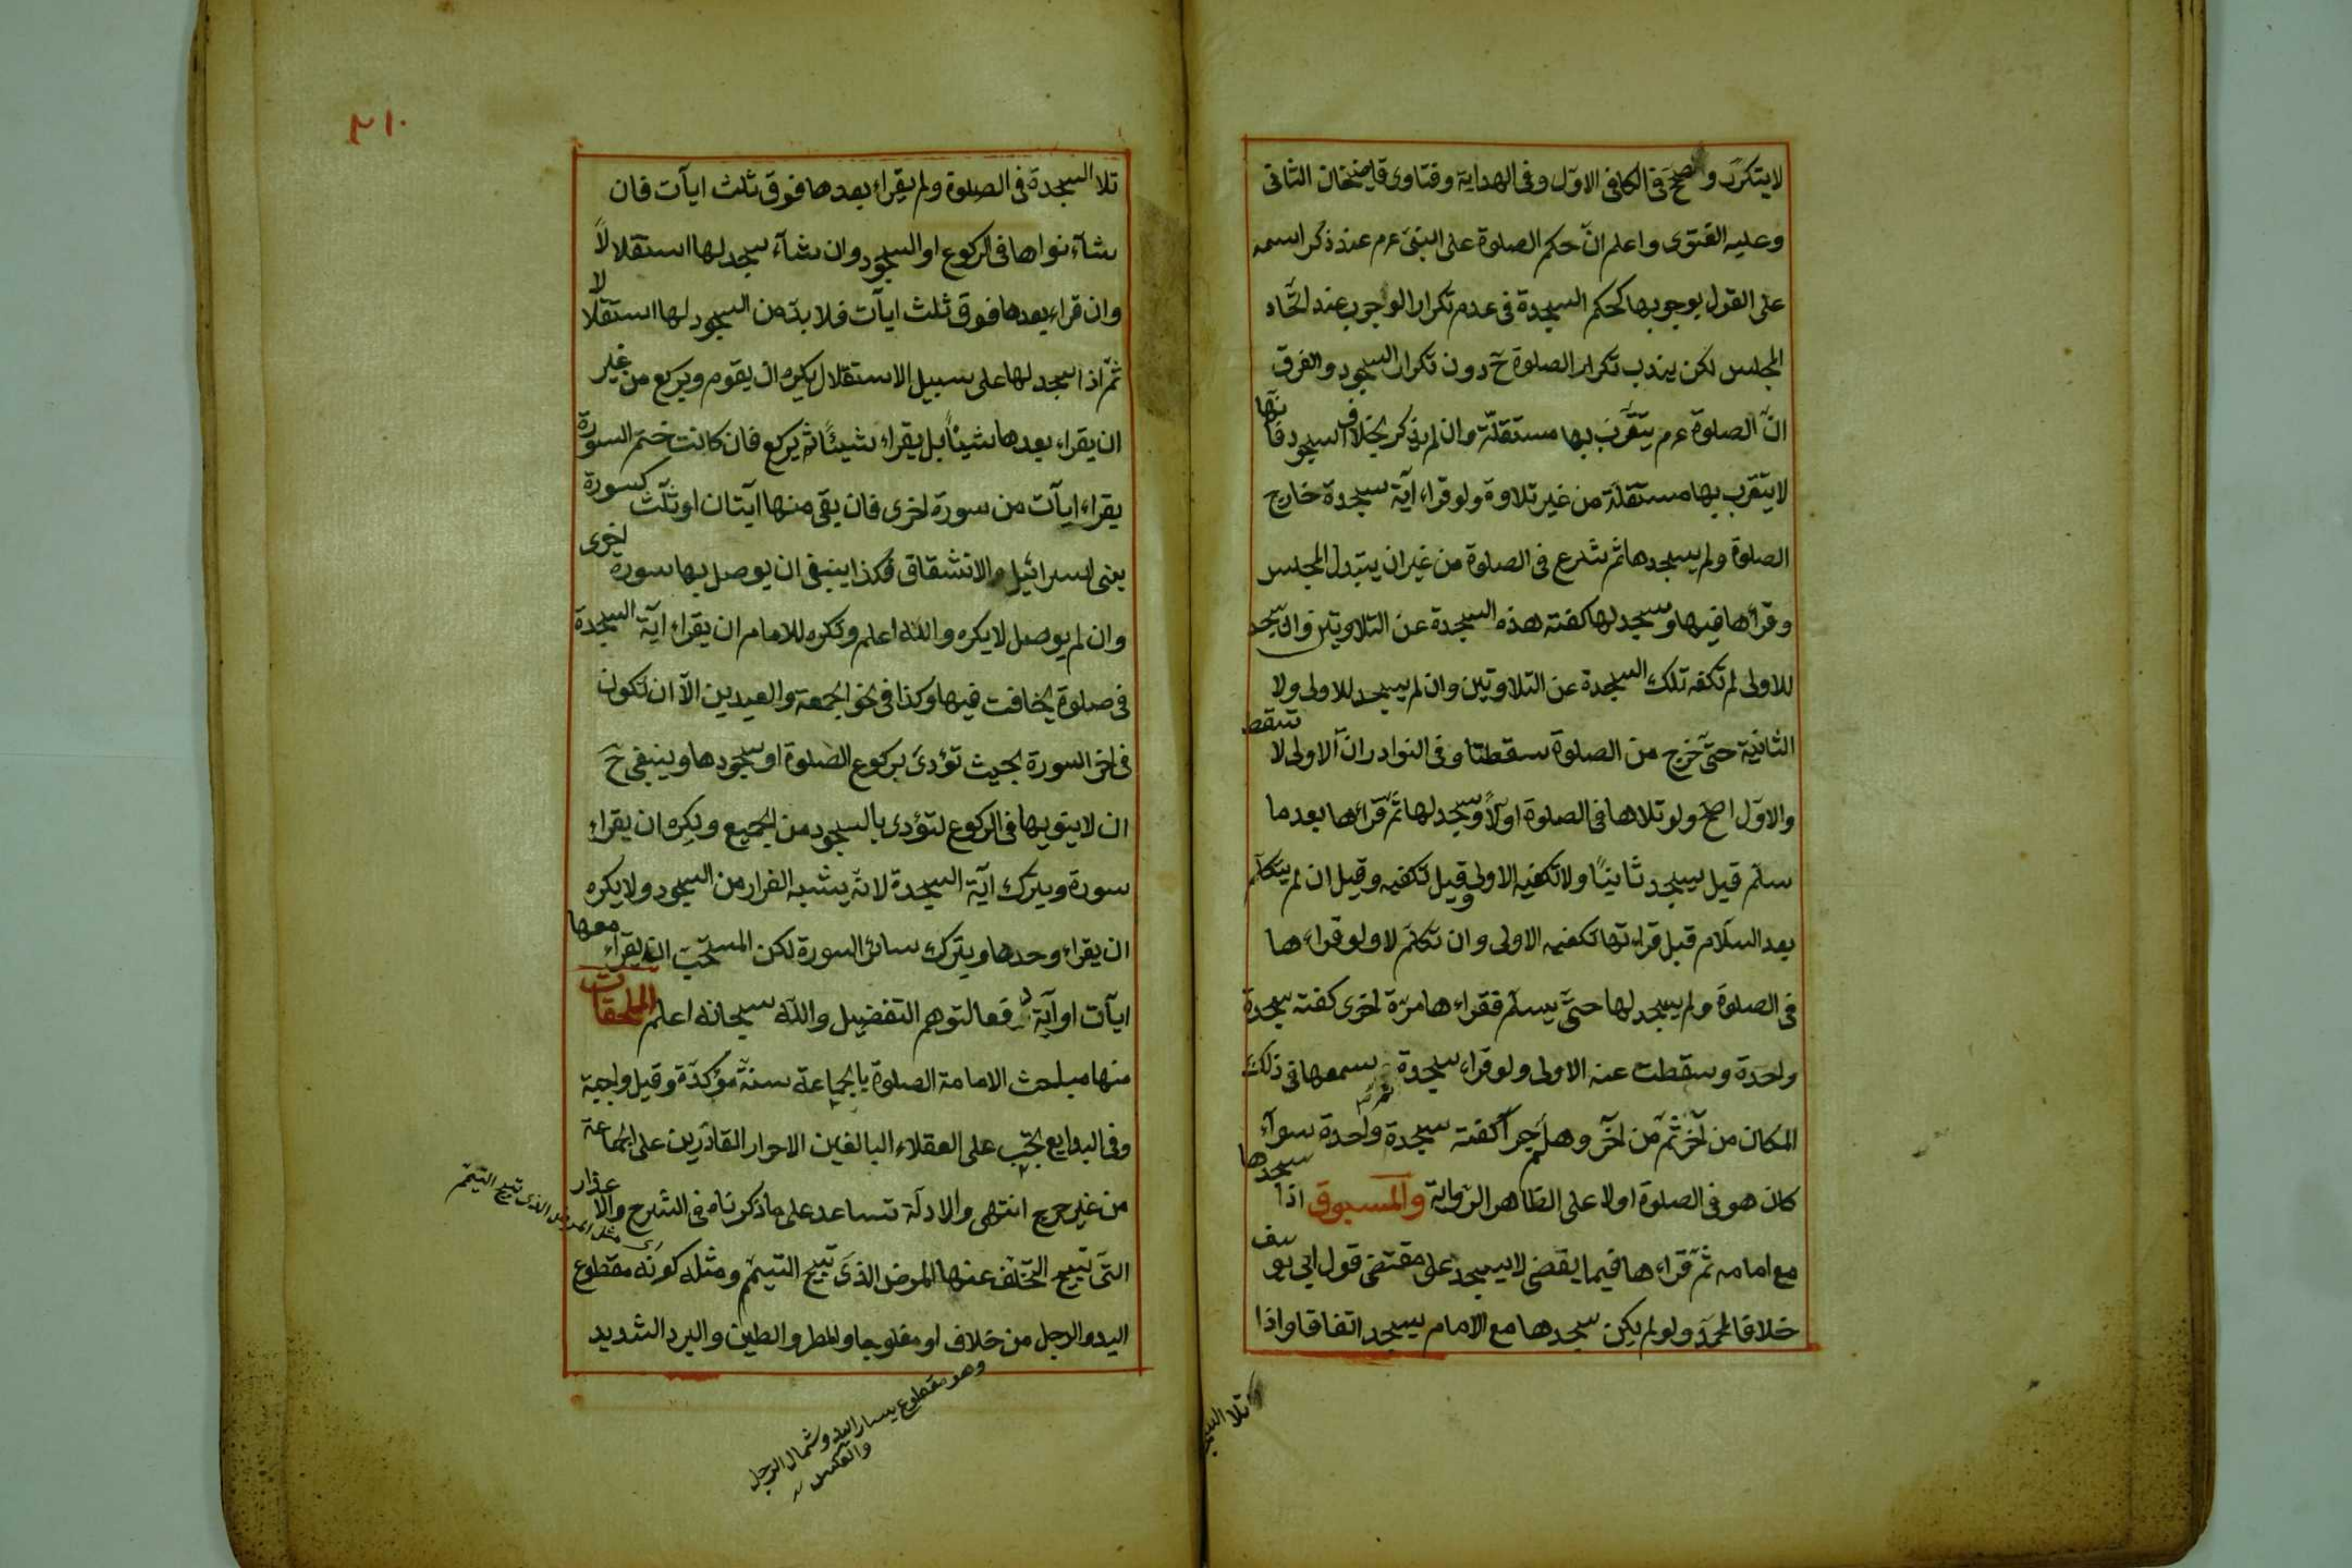 لا يتكرر وصحح فى الكافى الاوّل وفى الهداية وفتاوى قاضيخان الثانى
وعليه الفتوى واعلم انّ حكم الصلوة على النبىّ عم عند ذكر اسمه
على القول بوجوبها كحكم السجدة فى عدم تكرار الوجوب عند اتّحاد
المجلس لكن يندب تكرار الصلوة ح دون تكرار السجود والفرق
انّ الصلوة عم يتقرّب بها مستقلّة وان لم يذكر بخلاف السجود فانّها
لا يتقرب بها مستقلّة من غير تلاوة ولو قراء آية سجدة خارج
الصلوة ولم يسجدها ثم شرع فى الصلوة من غير ان يتبدل المجلس
وقرأها فيها وسجد لها كفته هذه السجدة عن التلاوتين وان سجد
للاولى لم تكفه تلك السجدة عن التلاوتين وان لم يسجد للاولى ولا
الثانية حتّى خرج من الصلوة سقطتا وفى النوادر انّ الاولى لا تسقط
والاوّل اصحّ ولو تلاها فى الصلوة اولاً وسجد لها ثمّ قرأها بعد ما
سلّم قيل يسجد ثانيًا ولا تكفيه الاولى وقيل تكفيه وقيل ان لم يتكلّم
بعد السلام قبل قراءتها تكفيه الاولى وان تكلّم لا ولو قراءها
فى الصلوة ولم يسجد لها حتّى يسلّم فقراءها مرّة اخرى كفته سجدة
واحدة وسقطت عنه الاولى ولو قراء سجدة ثم سمعها فى ذلك
المكان من آخر ثمّ من آخر وهلم جرا كفته سجدة واحدة سوآء
كان هو فى الصلوة اولا على الظاهر الرواية والمسبوق اذا سجدها
مع امامه ثمّ قراءها فيما يقضى لا يسجد على مقتضى قول ابى يوسف
خلافا لمحمّد ولو لم يكن سجدها مع الامام يسجد اتفاقا واذا
تلا السجدة
٢١٠
تلا السجدة فى الصلوة ولم يقراء بعدها فوق ثلث ايآت فان
شآء نواها فى الركوع او السجود وان شآء سجد لها استقلالاً
وان قراء بعدها فوق ثلث ايآت فلا بدّ من السجود لها استقلالا
ثمّ اذا سجد لها على سبيل الاستقلال يكره ان يقوم ويركع من غير
ان يقراء بعدها شيئاً بل يقراء شيئًا ثم يركع فان كانت ختم السورة
يقراء ايآت من سورة اخرى فان بقى منها ايتان او ثلث كسورة
بنى اسرائيل والانشقاق فكذا ينبغى ان يوصل بها سورة اخرى
وان لم يوصل لا يكره والله اعلم وتكره للامام ان يقراء آية السجدة
فى صلوة يخافت فيها وكذا فى نحو الجمعة والعيدين الاّ ان تكون
فى اخر السورة بحيث تؤدى بركوع الصلوة او سجودها وينبغى ح
ان لا ينويها فى الركوع لتؤدى بالسجود من الجميع ويكره ان يقراء
سورة ويترك آية السجدة لانّه يشبه الفرار من السجود ولا يكره
ان يقراء وحدها ويترك سائر السورة لكن المستحبّ ان يقراء معها
ايآت او آية دفعا لتوهم التفضيل والله سبحانه اعلم الملحقات
منها مبلحث الامامة الصلوة بالجماعة سنة مؤكدة وقيل واجبة
وفى البدايع تجب على العقلاء البالغين الاحرار القادرين على الجماعة
من غير حرج انتهى والادلّة تساعد على ما ذكرناه فى الشرح والاعذار
التى تبيح التخلّف عنها المرض الذى تبيح التيمّم ومثله كونه مقطوع
اليد والرجل من خلاف او مفلوجا والمطر والطين والبرد الشديد
اى مثل المرض الذى تبيح التيمّم
وهو مقطوع يسار اليد وشمال الرجل
والعكس